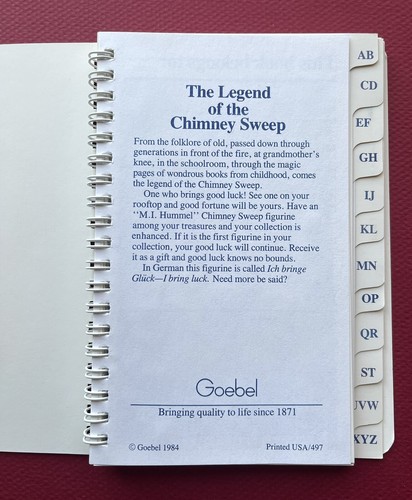 The Legend
of the
Chimney Sweep
From the folklore of old, passed down through
generations in front of the fire, at grandmother's
knee, in the schoolroom, through the magic
pages of wondrous books from childhood, comes
the legend of the Chimney Sweep.
One who brings good luck! See one on your
rooftop and good fortune will be yours. Have an
"M.I. Hummel" Chimney Sweep figurine
among your treasures and your collection is
enhanced. If it is the first figurine in your
collection, your good luck will continue. Receive
it as a gift and good luck knows no bounds.
In German this figurine is called Ich bringe
Glück—I bring luck. Need more be said?
Goebel
Bringing quality to life since 1871
© Goebel 1984 Printed USA/497
AB
CD
EF
GH
IJ
KL
MN
OP
QR
ST
UVW
XYZ